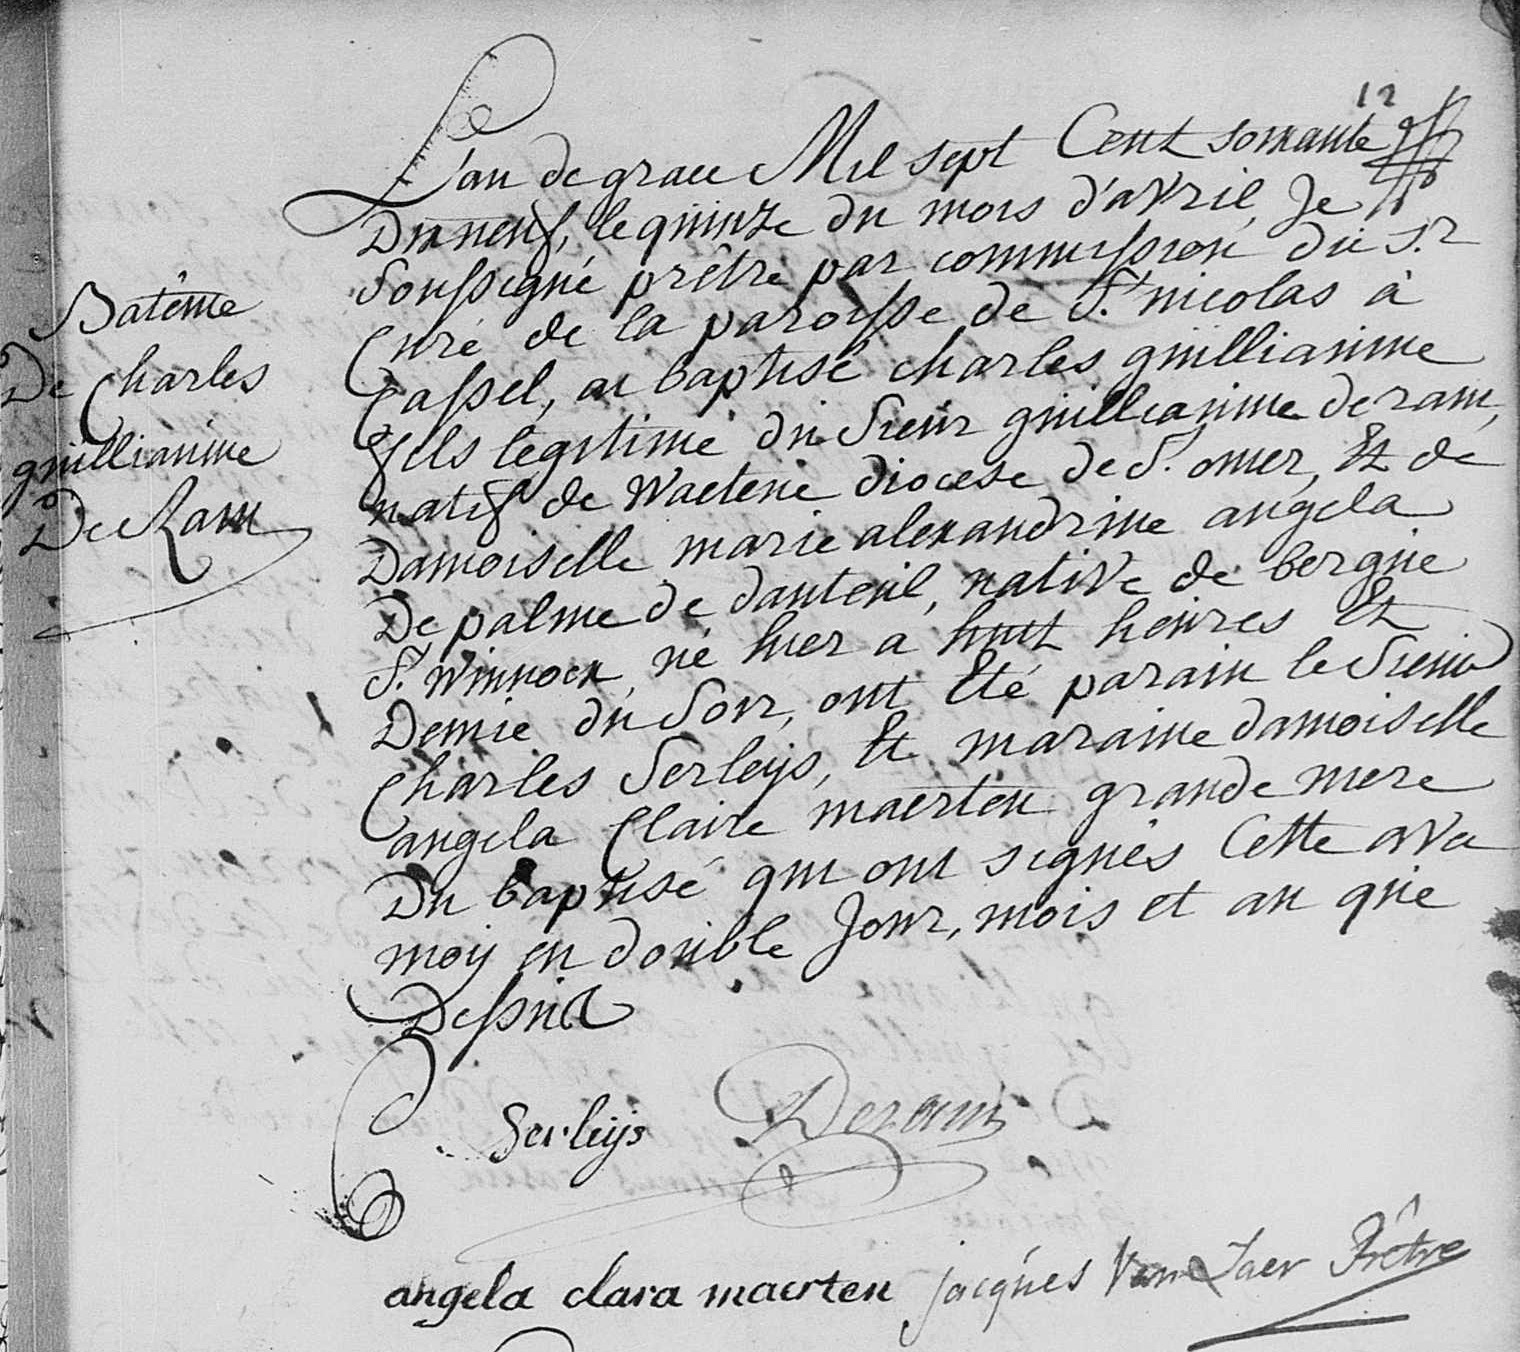 12
L'an de grace Mil sept Cent soixante
Dix neuf, le quinze du mois d'avril, Je
Soussigné prêtre par commission du S.r
Curé de la paroisse de S.t nicolas à
Cassel, ai baptisé charles guillianme
fils legitime du Sieur guillianme deram,
natif de Waetene diocese de S.t omer, Et de
Damoiselle marie alexandrine angela
De palme de dauteuil, native de bergue
S.t Winnock, né hier a huit heures Et
Demie du Soir, ont Eté parain le Sieur
Charles Serleijs, Et maraine damoiselle
angela Claire maerten grande mere
Du baptisé qui ont signés Cette avec
moij en double Jour, mois et an que
Dessus
Batême
De Charles
guillianme
De Ram
Serleijs Deram
angela clara maerten jacques Prêtre